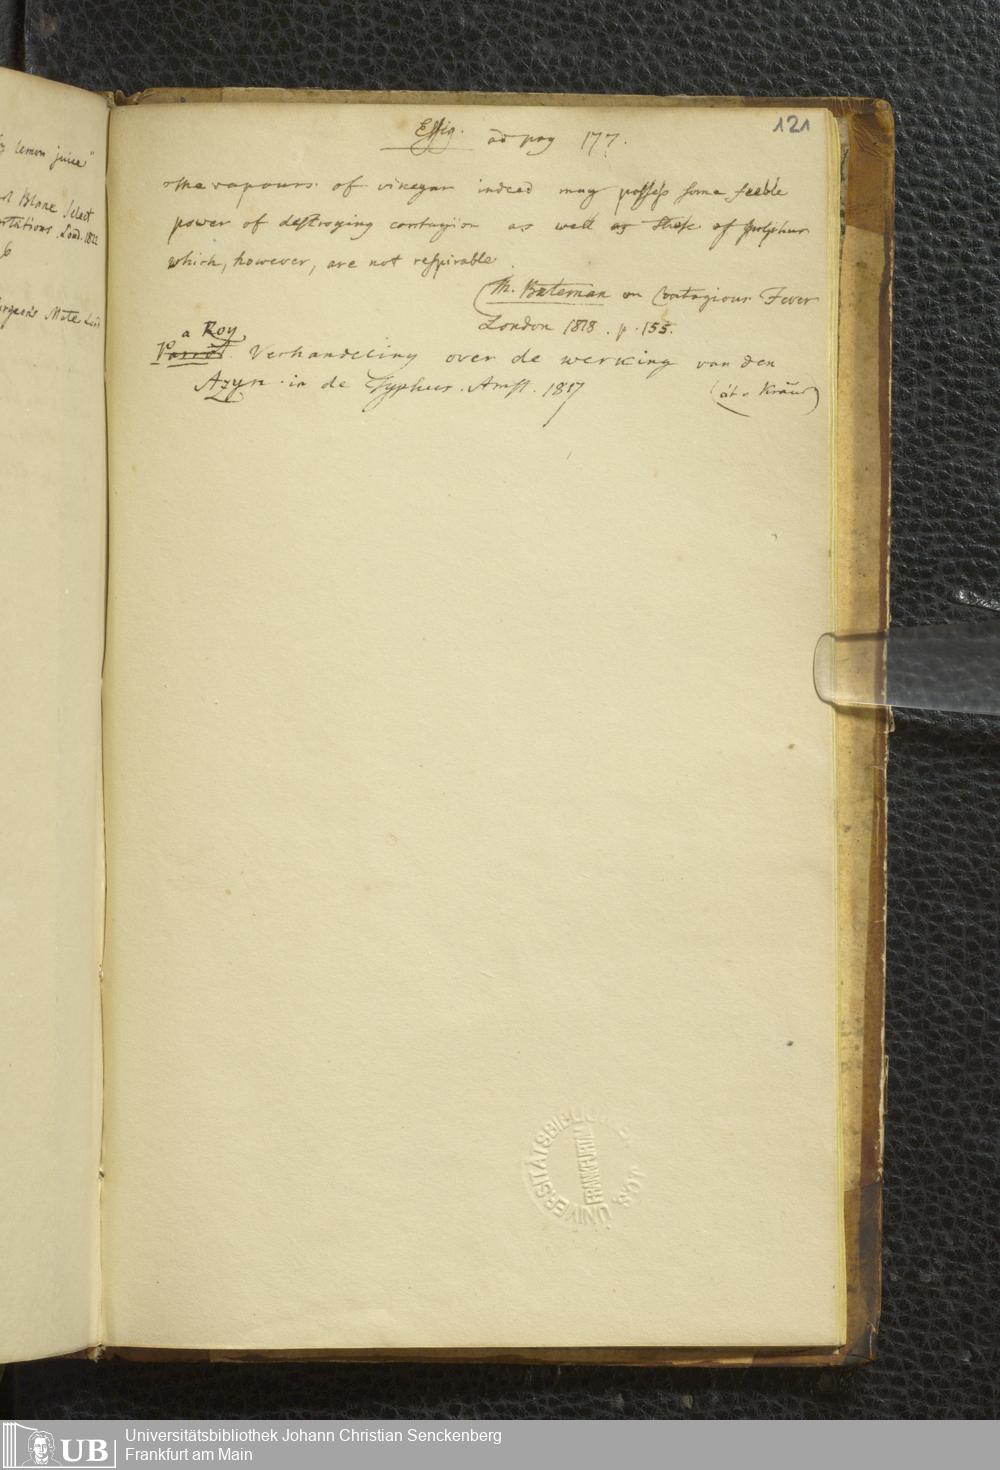 y lemon juice"
Blane Select
Lond. 1822
6
Mate Lond
121
Essig. ad pag 177.
The vapours of vinegar indeed may possess some feeble
power of destroying contagion as well as those of sulphur
which, however, are not respirable.
(Th. Bateman on Contagious Fever
London 1818. p. 155.
a Roy
Verhandeling over de werking van den
Azyn in de Typhus. Amst. 1817
UNIVERSITÄTSBIBLIO
FRANKFURT/M
Universitätsbibliothek Johann Christian Senckenberg
Frankfurt am Main
UB